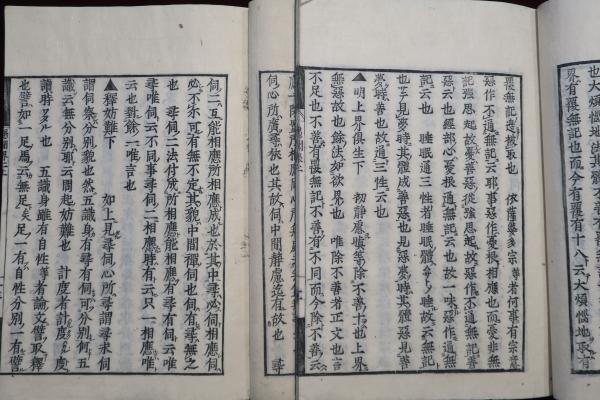 也大煩惱地取
界有覆無記也而今有覆有十八云大煩惱地取有
覆無記遮被取也
依薩婆多宗等者何事有宗意
惡作不通無記云耶事惡作憂根相應也而憂非無
記強思起故憂善惡從強思起故惡作不通無記善
惡云也經部心憂根通無記云也故一味惡作通無
記云也　睡眠通三性者睡眠體ナラ睡故云無記
也夢見夢時其體成善惡也見惡夢時其體惡見善
夢時善也故通三性云也
▲明上界俱生下　初靜慮等除不善十也上界
無惡故也餘法如欲界也　唯除不善者正文也言
不足也不善有覆無記不善有不同而今除不善云
伺心所廣尋依也其故伺中間靜慮迄有故也　尋
伺二互能相應所相應成也於其中尋必伺相應伺
必不尒可有無不定其貌中間禪伺也伺有尋無之
也　尋伺二法付成所相應能相應也有尋有伺云唯
尋唯伺云不同事尋伺二相應時有云只一相應唯
云也對餘一唯言也
▲釋妨難下　如上見尋伺心所尋謂尋求伺
謂伺察分別貌也然五識身有尋有伺可分別何五
識云無分別耶云問起妨難也　計度者計度
讀時ヌル也　五識身雖有自性等者論文譬取釋
也譬如一足馬云無足矣足一有自性分別一有譬